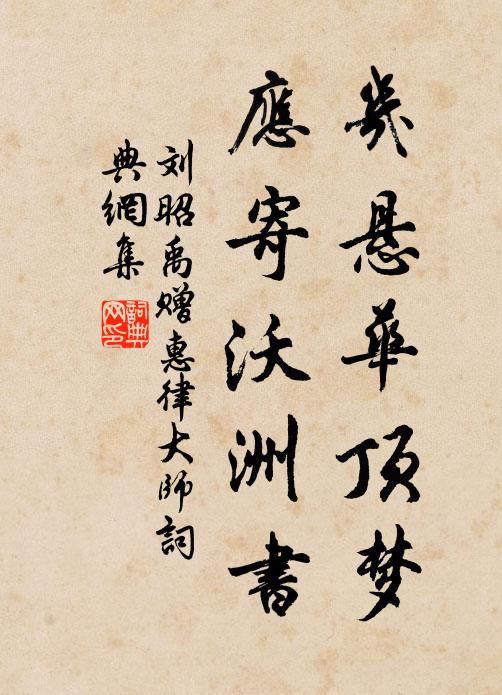 幾悬華顶梦
應寄沃洲書
刘昭禹赠惠律大師詞
典網集
詞典
网印